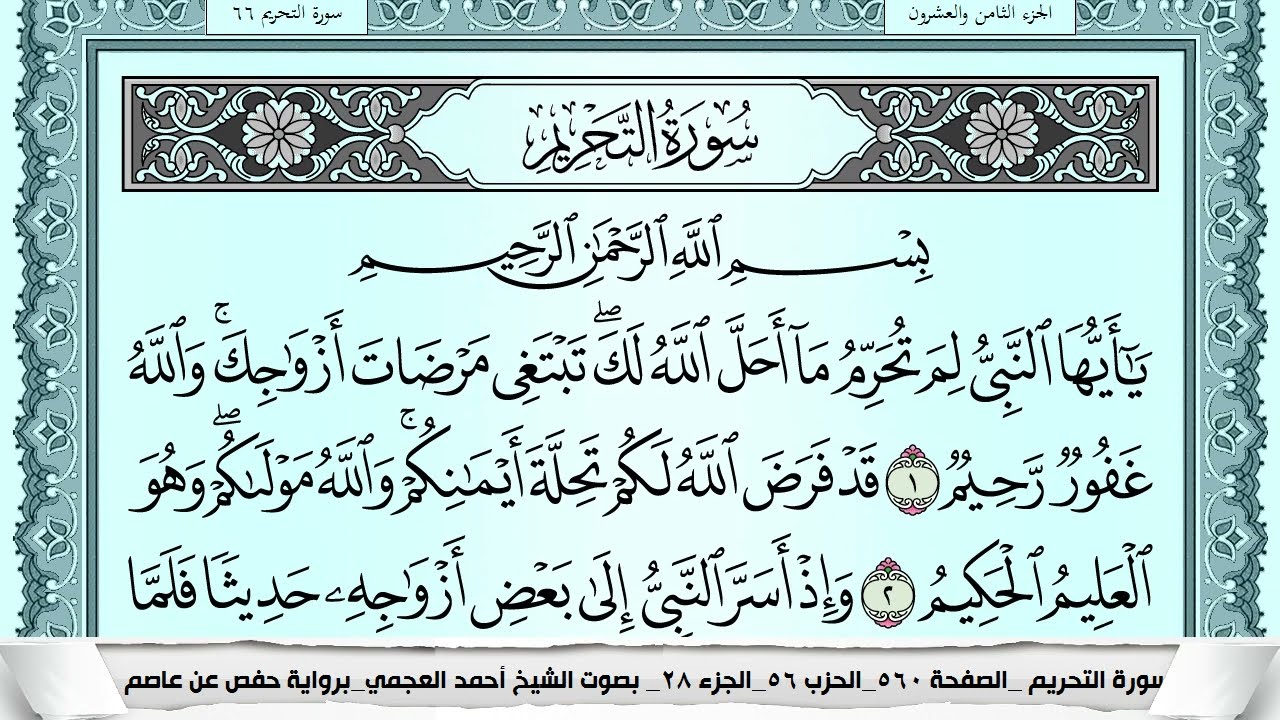 الجزء الثامن والعشرون
سورة التحريم ٦٦
سُورَةُ التَّحْرِيمِ
بِسْمِ ٱللَّهِ ٱلرَّحْمَٰنِ ٱلرَّحِيمِ
يَٰٓأَيُّهَا ٱلنَّبِىُّ لِمَ تُحَرِّمُ مَآ أَحَلَّ ٱللَّهُ لَكَۖ تَبْتَغِى مَرْضَاتَ أَزْوَٰجِكَۚ وَٱللَّهُ
غَفُورٌ رَّحِيمٌ ١ قَدْ فَرَضَ ٱللَّهُ لَكُمْ تَحِلَّةَ أَيْمَٰنِكُمْۚ وَٱللَّهُ مَوْلَىٰكُمْۖ وَهُوَ
ٱلْعَلِيمُ ٱلْحَكِيمُ ٢ وَإِذْ أَسَرَّ ٱلنَّبِىُّ إِلَىٰ بَعْضِ أَزْوَٰجِهِۦ حَدِيثًا فَلَمَّا
سورة التحريم _الصفحة ٥٦٠_الحزب ٥٦_الجزء ٢٨_ بصوت الشيخ أحمد العجمي_برواية حفص عن عاصم